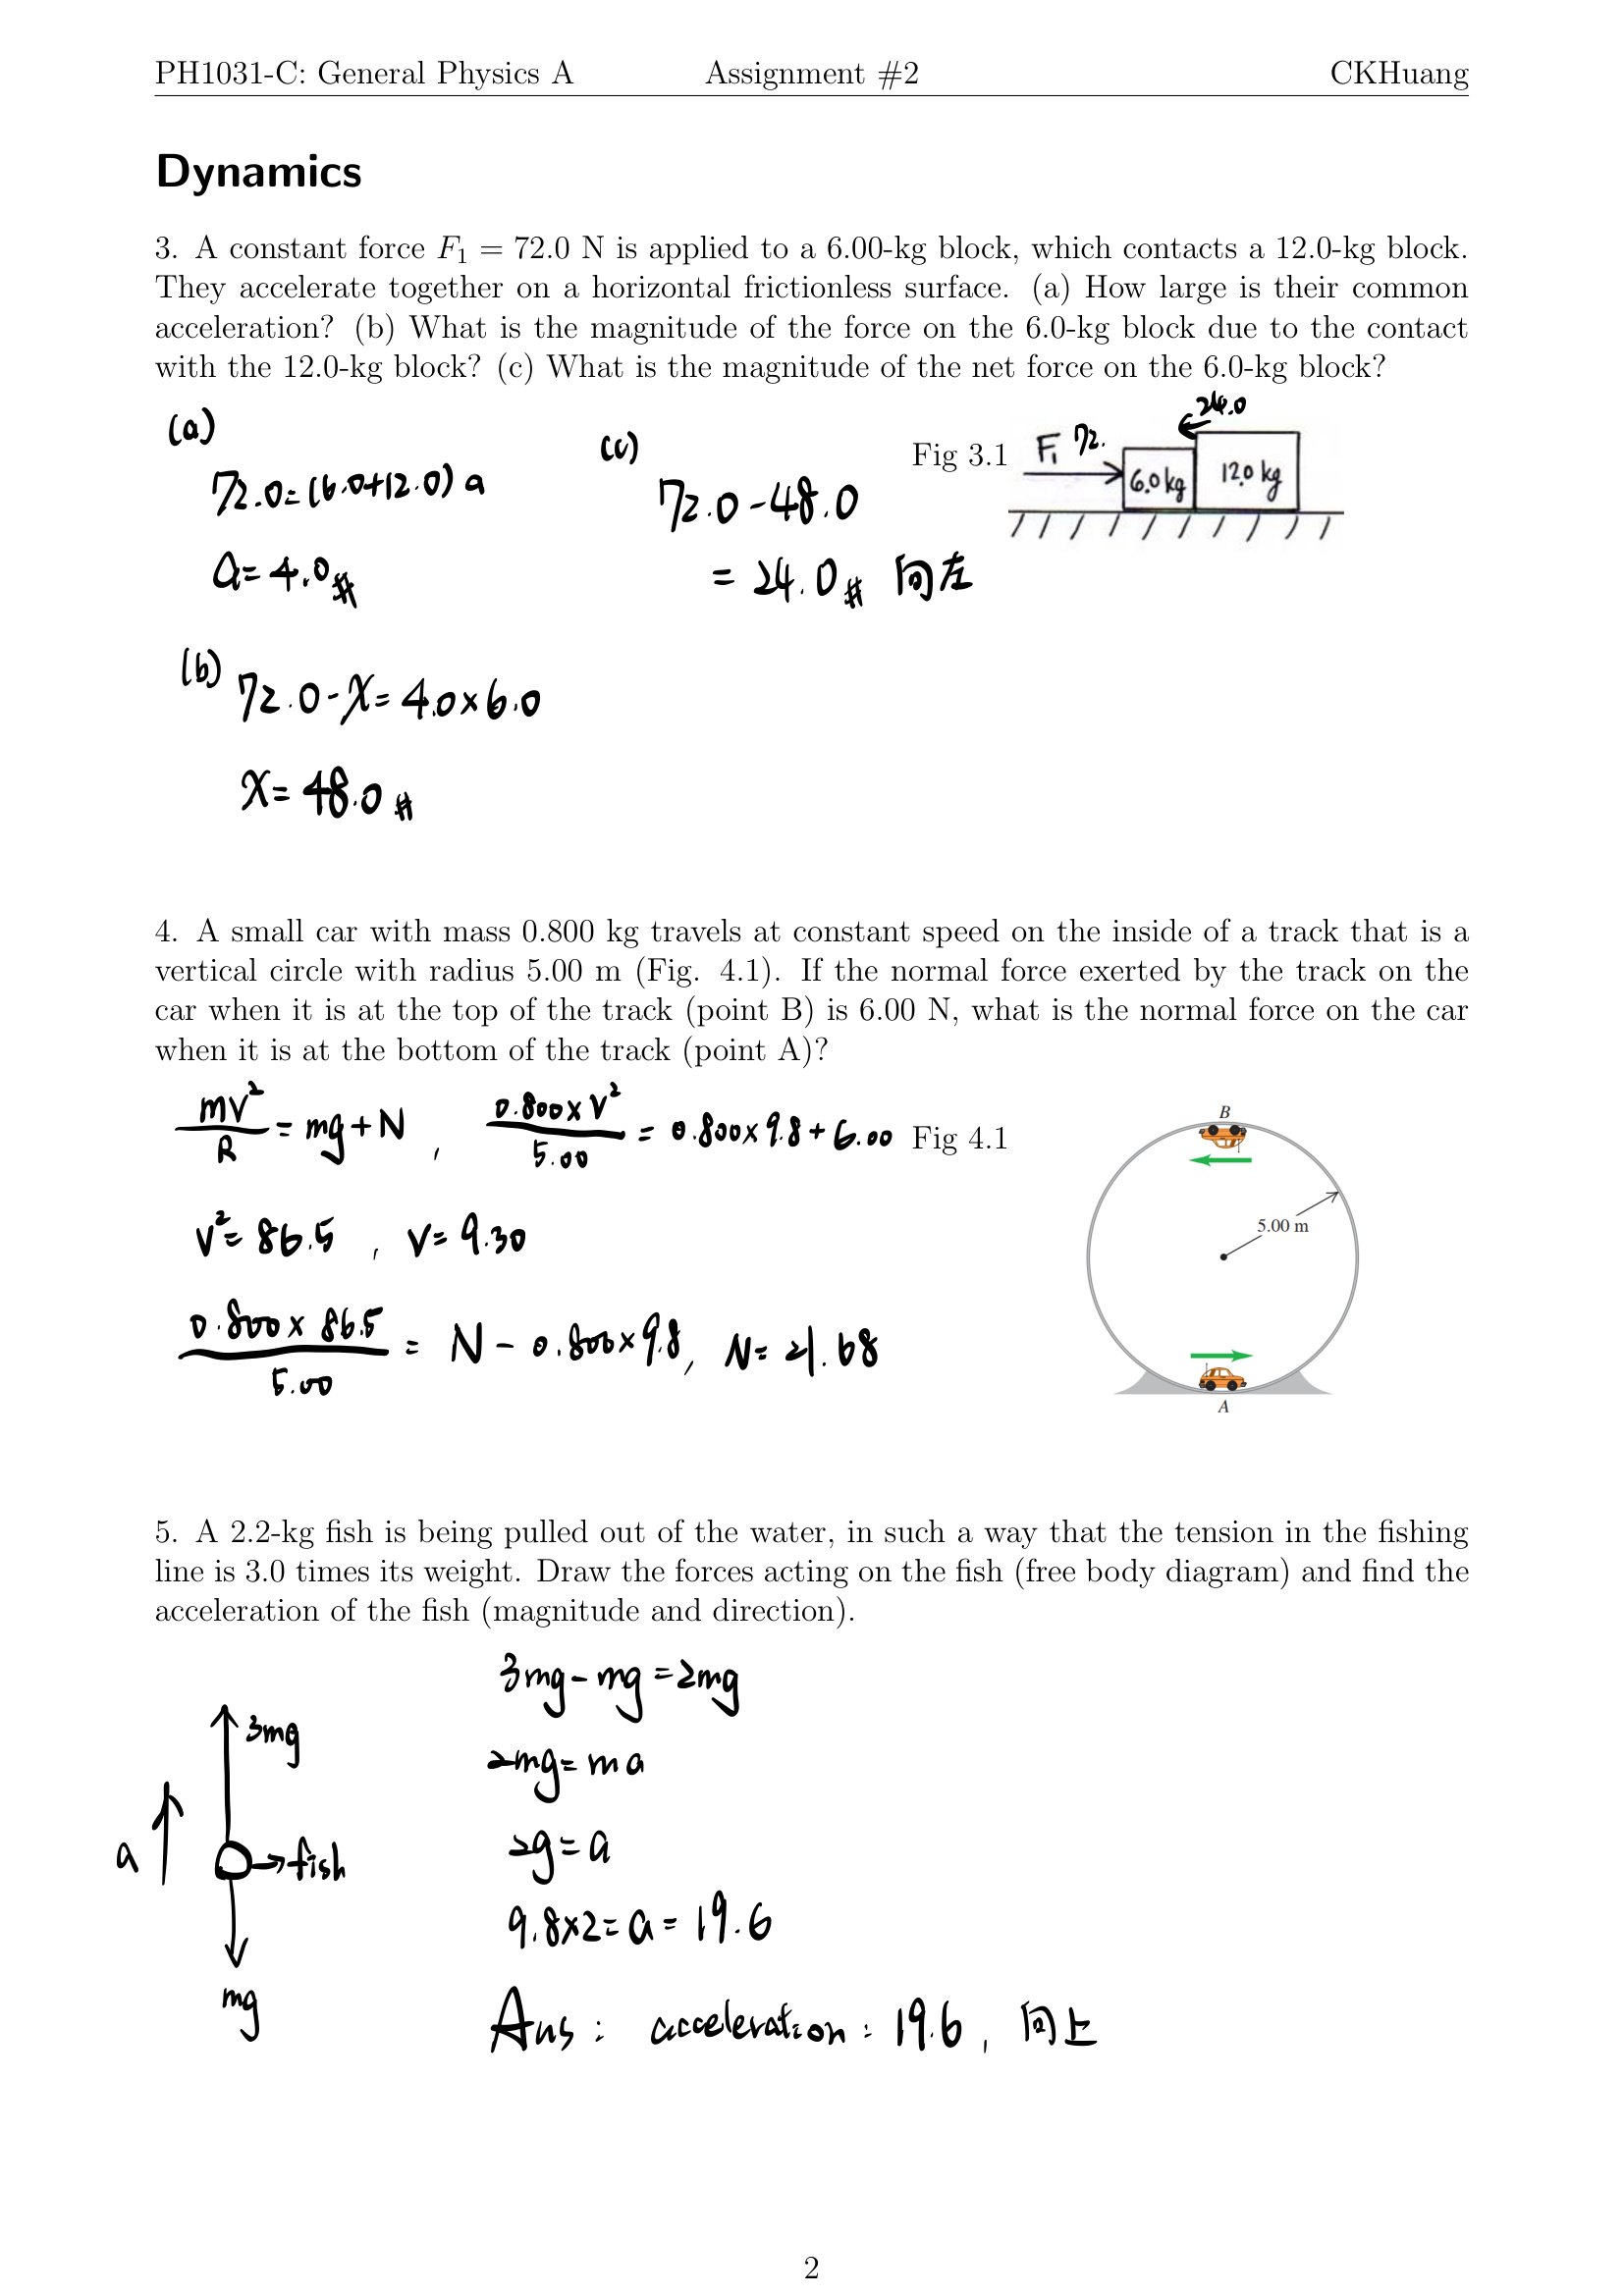 PH1031-C: General Physics A Assignment #2 CKHuang
Dynamics
3. A constant force F₁ = 72.0 N is applied to a 6.00-kg block, which contacts a 12.0-kg block.
They accelerate together on a horizontal frictionless surface. (a) How large is their common
acceleration? (b) What is the magnitude of the force on the 6.0-kg block due to the contact
with the 12.0-kg block? (c) What is the magnitude of the net force on the 6.0-kg block?
(a)
72.0=(6.0+12.0) a
a=4.0#
(b)
72.0-X=4.0×6.0
X=48.0#
(c)
72.0-48.0
=24.0# 向左
Fig 3.1
F₁ 72.
24.0
6.0kg
12.0 kg
4. A small car with mass 0.800 kg travels at constant speed on the inside of a track that is a
vertical circle with radius 5.00 m (Fig. 4.1). If the normal force exerted by the track on the
car when it is at the top of the track (point B) is 6.00 N, what is the normal force on the car
when it is at the bottom of the track (point A)?
mv²/R = mg+N , 0.800×V²/5.00 = 0.800×9.8+6.00
V²=86.5 , V=9.30
0.800×86.5/5.00 = N-0.800×9.8, N=21.68
Fig 4.1
B
5.00 m
A
5. A 2.2-kg fish is being pulled out of the water, in such a way that the tension in the fishing
line is 3.0 times its weight. Draw the forces acting on the fish (free body diagram) and find the
acceleration of the fish (magnitude and direction).
3mg
a
→fish
mg
3mg-mg=2mg
2mg=ma
2g=a
9.8×2=a=19.6
Ans: acceleration: 19.6, 向上
2